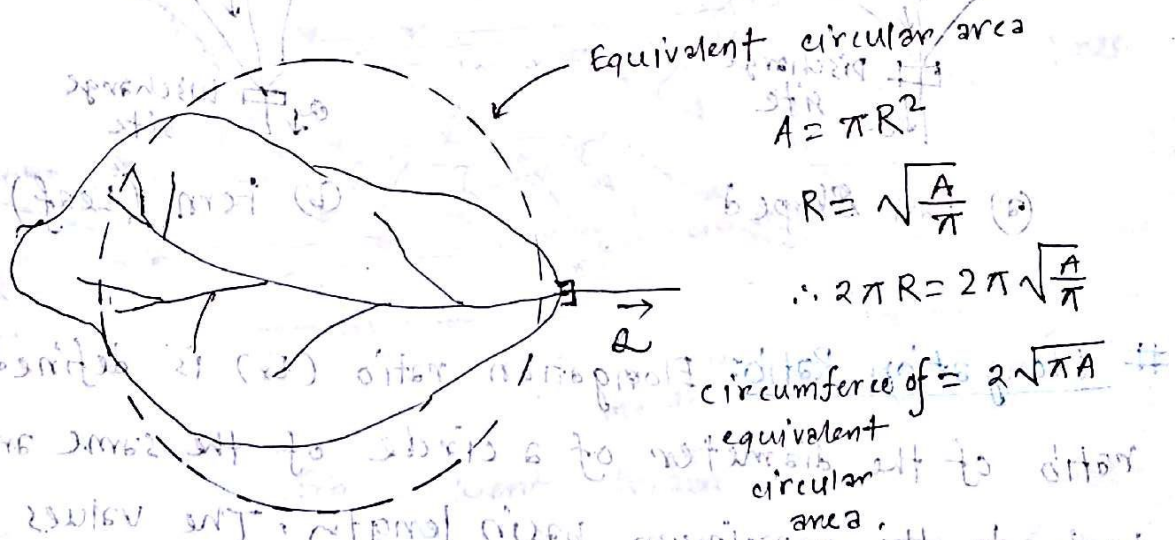 Equivalent circular area
A = πR²
R = √(A/π)
∴ 2πR = 2π√(A/π)
Q
circumferce of = 2√(πA)
equivalent
circular
area.